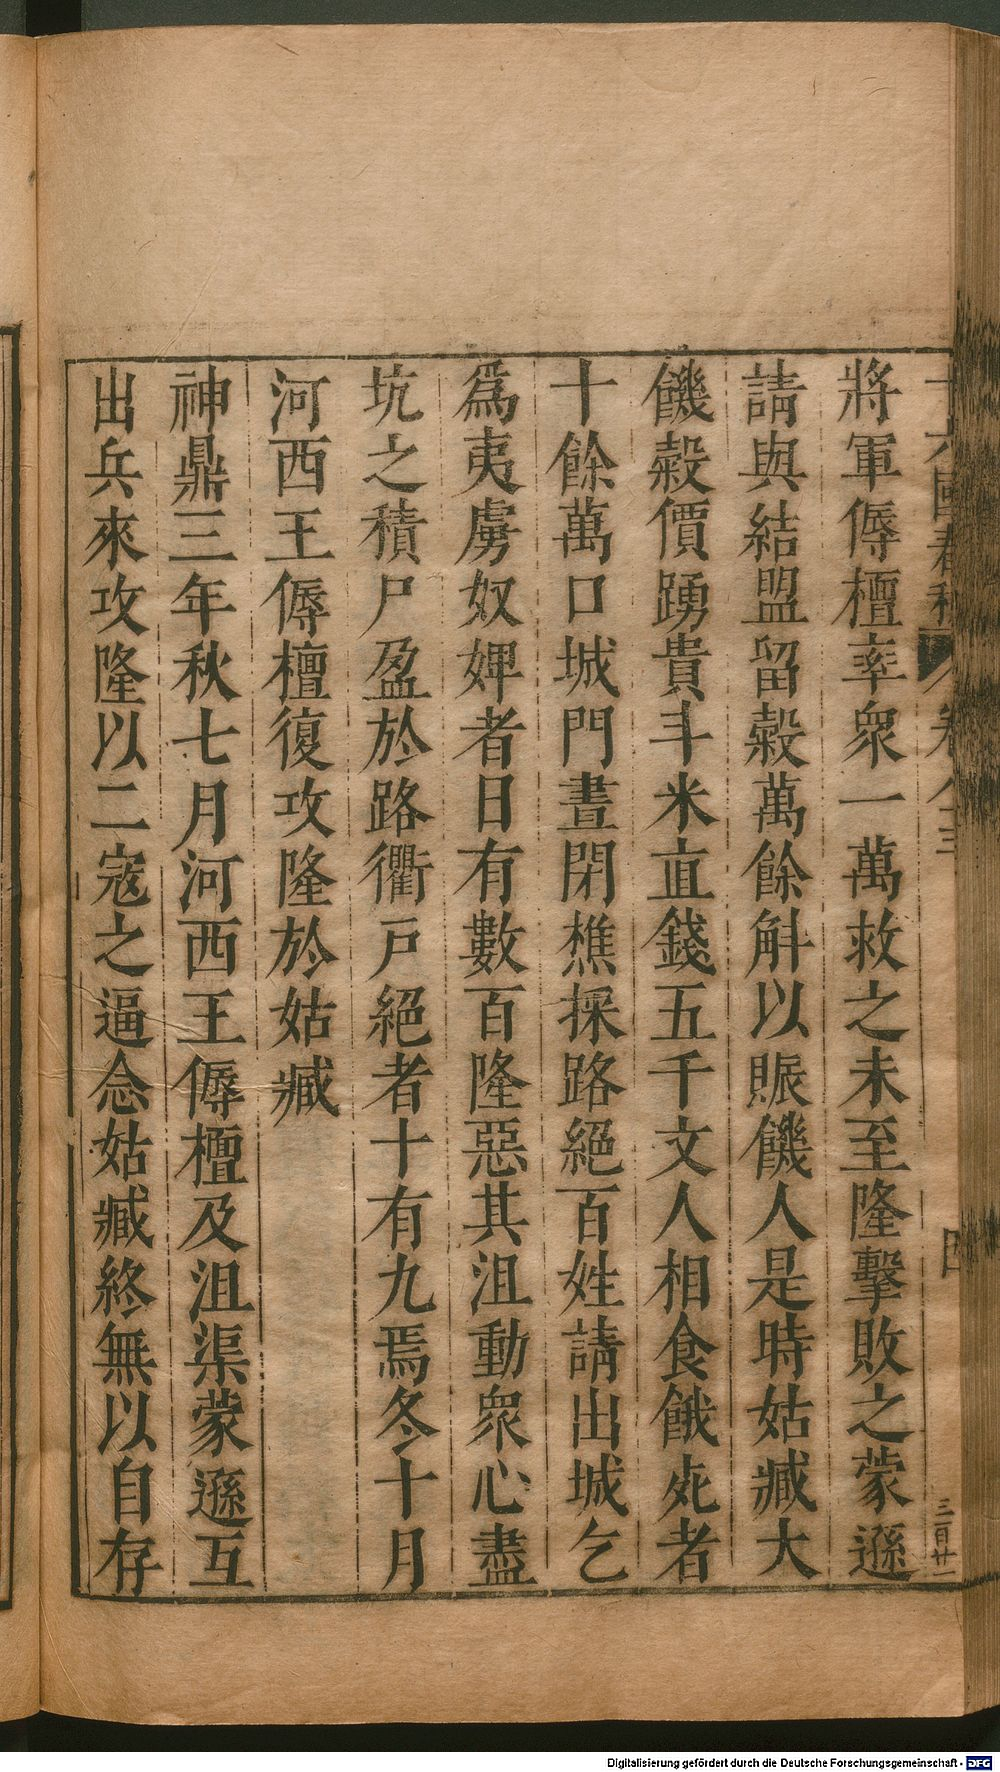 將軍傉檀率衆一萬救之未至隆擊敗之蒙遜
請與結盟留穀萬餘斛以賑饑人是時姑臧大
饑穀價踴貴斗米直錢五千文人相食餓死者
十餘萬口城門晝閉樵採路絕百姓請出城乞
爲夷虜奴婢者日有數百隆惡其沮動衆心盡
坑之積尸盈於路衢戸絕者十有九焉冬十月
河西王傉檀復攻隆於姑臧
神鼎三年秋七月河西王傉檀及沮渠蒙遜互
出兵來攻隆以二寇之逼念姑臧終無以自存
Digitalisierung gefördert durch die Deutsche Forschungsgemeinschaft - DFG